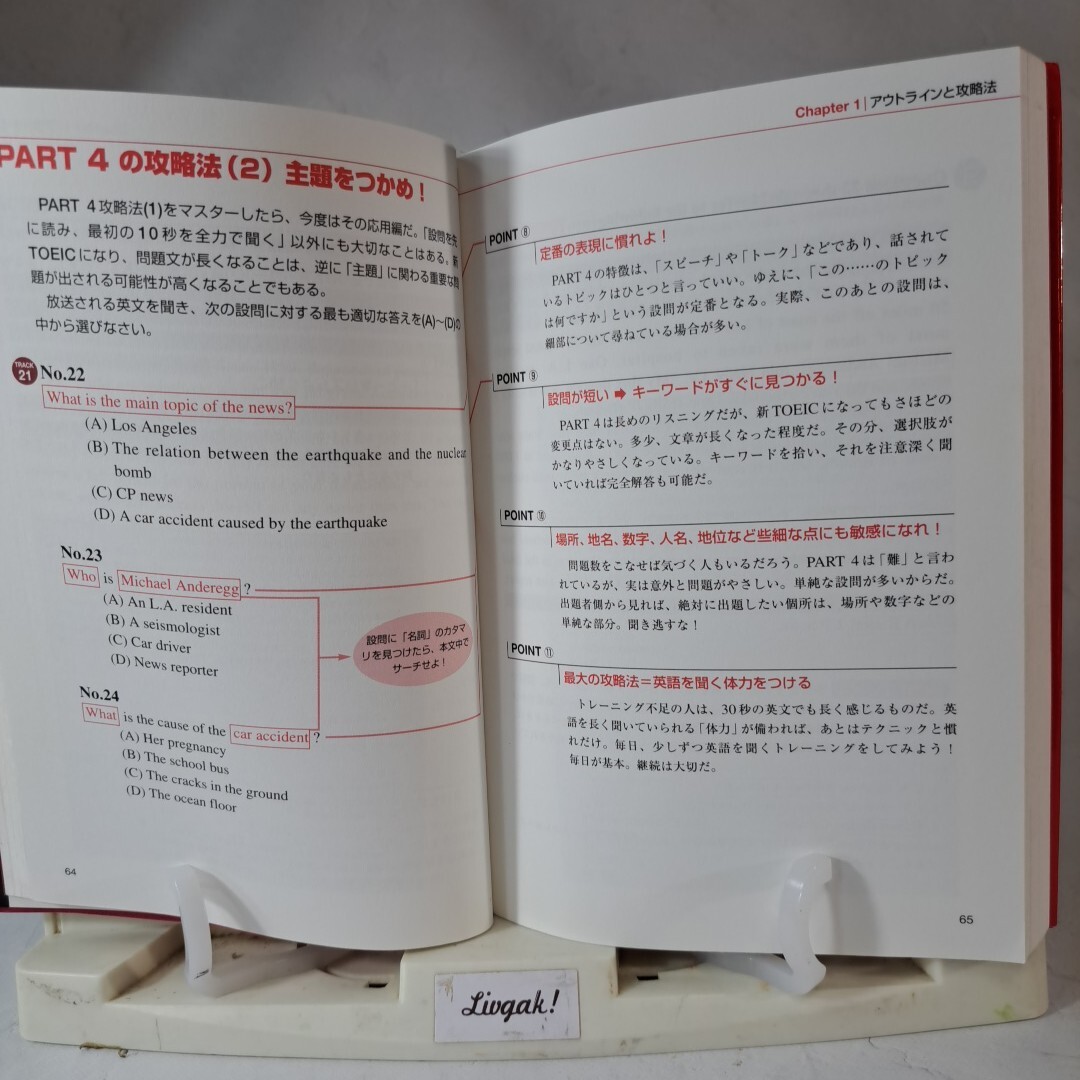 PART 4 の攻略法(2) 主題をつかめ!
PART 4攻略法(1)をマスターしたら、今度はその応用編だ。「設問を先
に読み、最初の10秒を全力で聞く」以外にも大切なことはある。新
TOEICになり、問題文が長くなることは、逆に「主題」に関わる重要な問
題が出される可能性が高くなることでもある。
放送される英文を聞き、次の設問に対する最も適切な答えを(A)〜(D)の
中から選びなさい。
TRACK 21
No.22
What is the main topic of the news?
(A) Los Angeles
(B) The relation between the earthquake and the nuclear
bomb
(C) CP news
(D) A car accident caused by the earthquake
No.23
Who is Michael Anderegg ?
(A) An L.A. resident
(B) A seismologist
(C) Car driver
(D) News reporter
設問に「名詞」のカタマ
リを見つけたら、本文中で
サーチせよ!
No.24
What is the cause of the car accident ?
(A) Her pregnancy
(B) The school bus
(C) The cracks in the ground
(D) The ocean floor
64
Chapter 1 | アウトラインと攻略法
POINT ⑧
定番の表現に慣れよ!
PART 4の特徴は、「スピーチ」や「トーク」などであり、話されて
いるトピックはひとつと言っていい。ゆえに、「この……のトピック
は何ですか」という設問が定番となる。実際、このあとの設問は、
細部について尋ねている場合が多い。
POINT ⑨
設問が短い ➡ キーワードがすぐに見つかる!
PART 4は長めのリスニングだが、新TOEICになってもさほどの
変更点はない。多少、文章が長くなった程度だ。その分、選択肢が
かなりやさしくなっている。キーワードを拾い、それを注意深く聞
いていれば完全解答も可能だ。
POINT ⑩
場所、地名、数字、人名、地位など些細な点にも敏感になれ!
問題数をこなせば気づく人もいるだろう。PART 4は「難」と言わ
れているが、実は意外と問題がやさしい。単純な設問が多いからだ。
出題者側から見れば、絶対に出題したい個所は、場所や数字などの
単純な部分。聞き逃すな!
POINT ⑪
最大の攻略法=英語を聞く体力をつける
トレーニング不足の人は、30秒の英文でも長く感じるものだ。英
語を長く聞いていられる「体力」が備われば、あとはテクニックと慣
れだけ。毎日、少しずつ英語を聞くトレーニングをしてみよう!
毎日が基本。継続は大切だ。
65
Livgak!